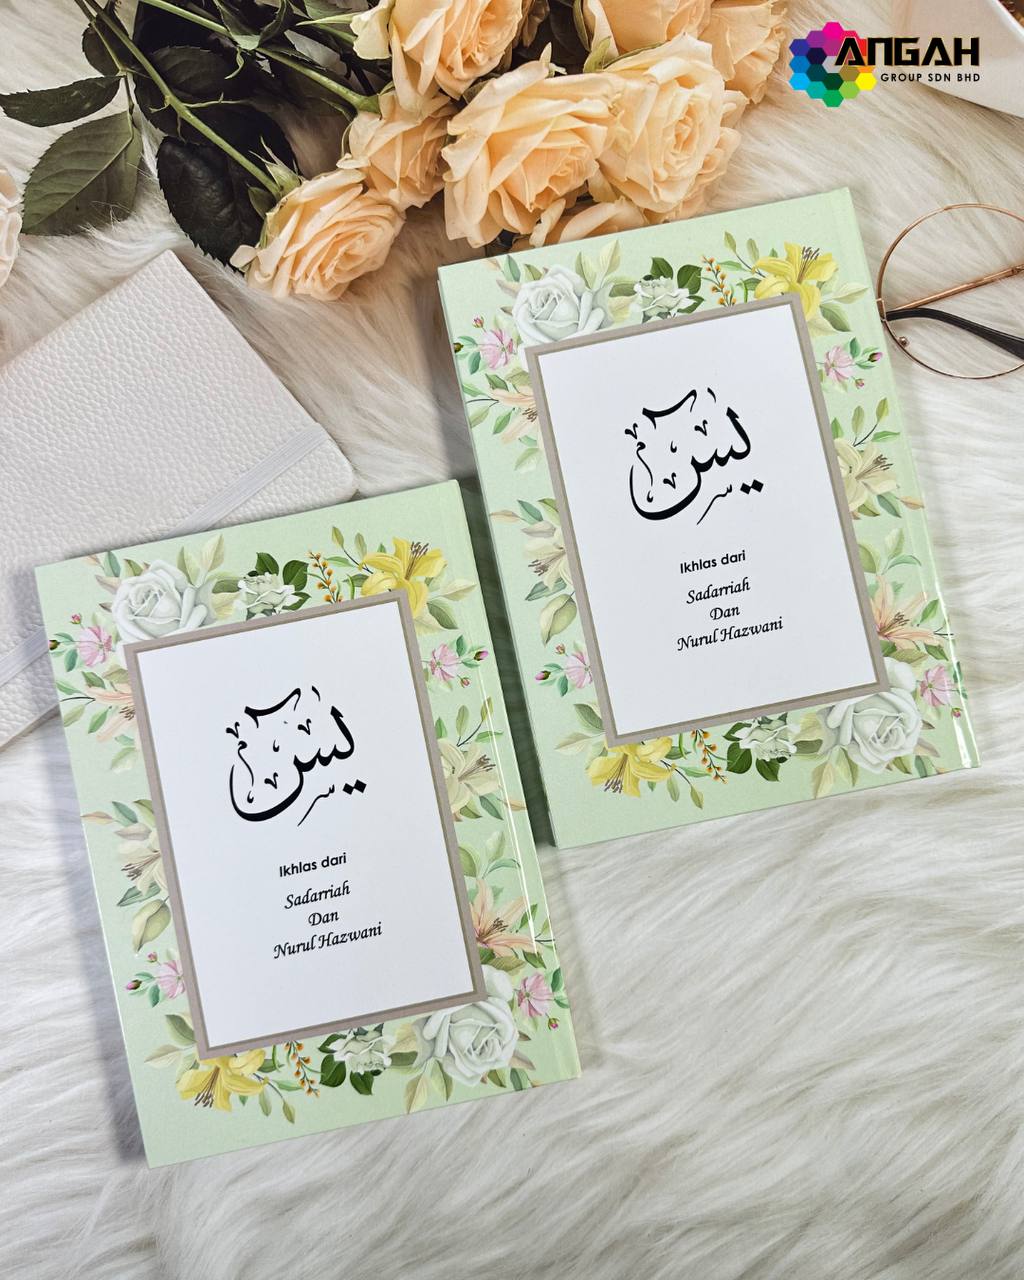 ANGAH
GROUP SDN BHD
يس
Ikhlas dari
Sadarriah
Dan
Nurul Hazwani
يس
Ikhlas dari
Sadarriah
Dan
Nurul Hazwani